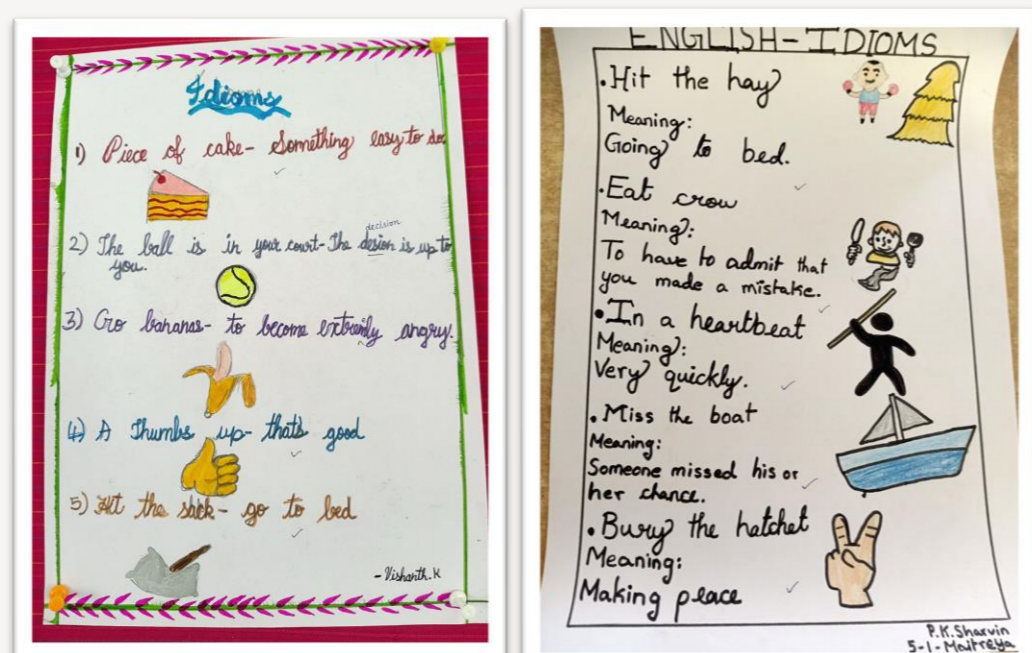 Idioms
1) Piece of cake- Something easy to do.
decision
2) The ball is in your court- The desion is up to
you.
3) Go bananas- to become extremly angry.
4) A Thumbs up- that's good
5) Hit the sack- go to bed
-Vishanth.K
ENGLISH-IDIOMS
•Hit the hay
Meaning:
Going to bed.
•Eat crow
Meaning:
To have to admit that
you made a mistake.
•In a heartbeat
Meaning:
Very quickly.
•Miss the boat
Meaning:
Someone missed his or
her chance.
•Bury the hatchet
Meaning:
Making peace
P.K.Sharvin
5-1-Maitreya